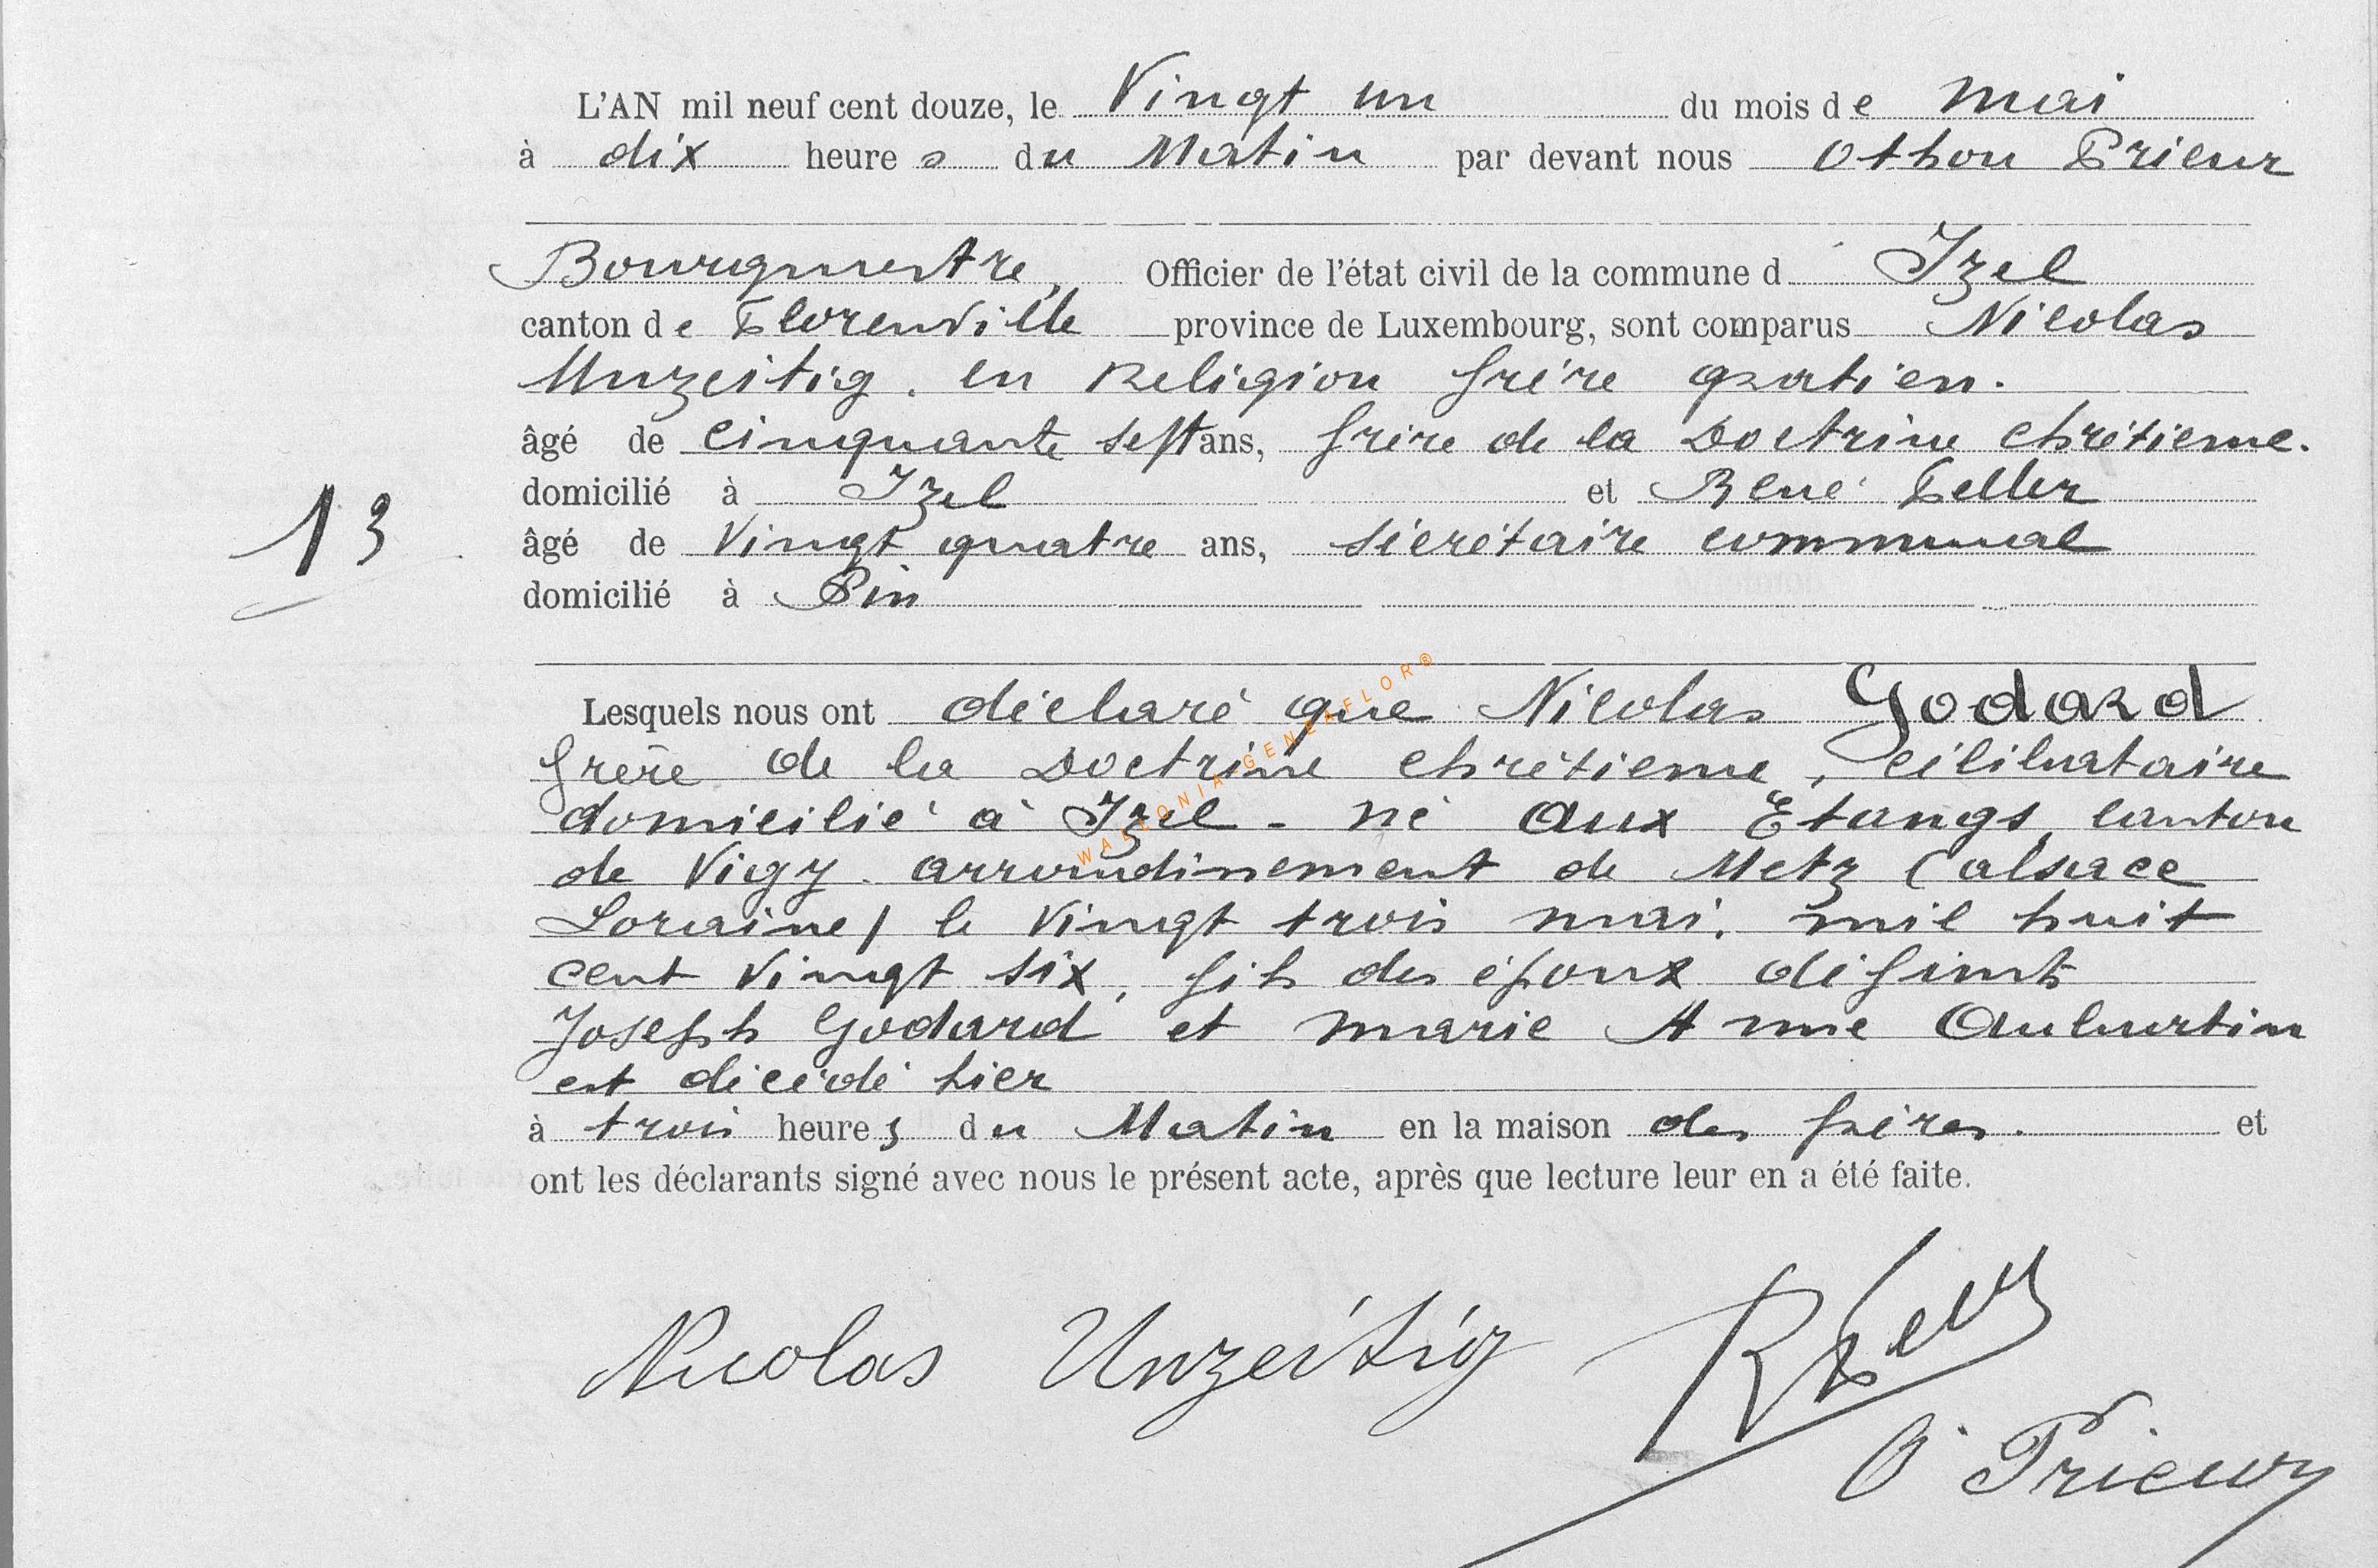 L'AN mil neuf cent douze, le Vingt un du mois de Mai
à dix heures du Matin par devant nous Othon Prieur
Bourgmestre, Officier de l'état civil de la commune d Izel
canton de Florenville province de Luxembourg, sont comparus Nicolas
Unzeitig. en Religion frère gratien.
âgé de cinquante sept ans, frère de la Doctrine chrétienne.
domicilié à Izel et René Feller
13
âgé de Vingt quatre ans, sécrétaire communal
domicilié à Pin
Lesquels nous ont déclaré que Nicolas Godard
frère de la Doctrine chrétienne, célibataire
domicilié à Izel - né aux Etangs, canton
de Vigy. arrondissement de Metz (alsace
Loraine) le Vingt trois mai. mil huit
cent Vingt six, fils des époux défunts
Joseph Godard et Marie Anne Auburtin
est décédé hier
à trois heures du Matin en la maison des frères. et
ont les déclarants signé avec nous le présent acte, après que lecture leur en a été faite.
Nicolas Unzeitig
O Prieur
WALLONIA-GENEAFLOR®